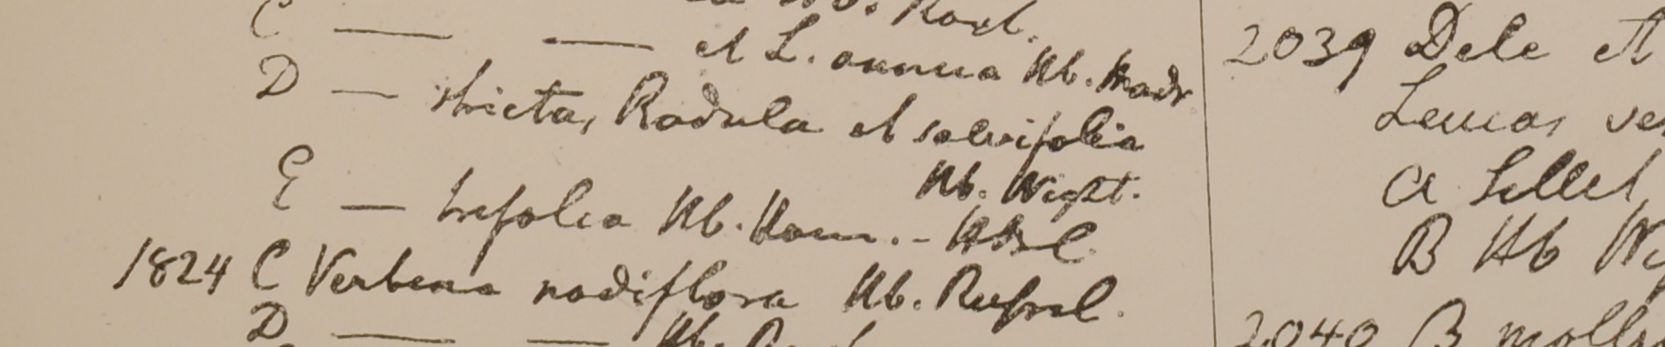 C — — et L. annua Hb. Madr
D — stricta, Radula et salvifolia
Hb. Wight.
E — trifolia Hb. Ham. -
1824 C Verbena nodiflora Hb. Russel.
D — — Hb.
2039 Dele et
Leucas
A Sillet
B Hb
2040 B